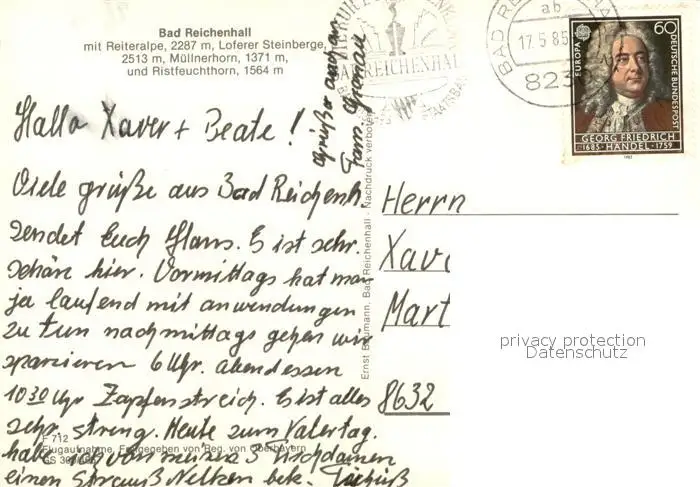 Bad Reichenhall
mit Reiteralpe, 2287 m, Loferer Steinberge,
2513 m, Müllnerhorn, 1371 m,
und Ristfeuchthorn, 1564 m
BAD REICHENHALL
STAATSBAD
BAD REICHENHALL
ab
17.5.85
823
EUROPA
60
DEUTSCHE BUNDESPOST
GEORG FRIEDRICH
1685 · HÄNDEL · 1759
Grüße auch an
Fam.
Hallo Xaver + Beate !
Viele grüße aus Bad Reichenh.
sendet Euch Hans. Es ist sehr.
schöne hier. Vormittags hat man
ja laufend mit anwendungen
zu tun nachmittags gehen wir
spazieren 6 Uhr. abendessen
10 30 Uhr Zapfenstreich. Es ist alles
sehr. streng. Heute zum Vatertag.
habe ich von meinen 3 Tischdamen
einen Strauß Nelken bek.
F 712
Flugaufnahme, Freigegeben von Reg. von Oberbayern
GS 300
Ernst Baumann, Bad Reichenhall - Nachdruck verboten
Herrn
Xav
Mart
8632
privacy protection
Datenschutz